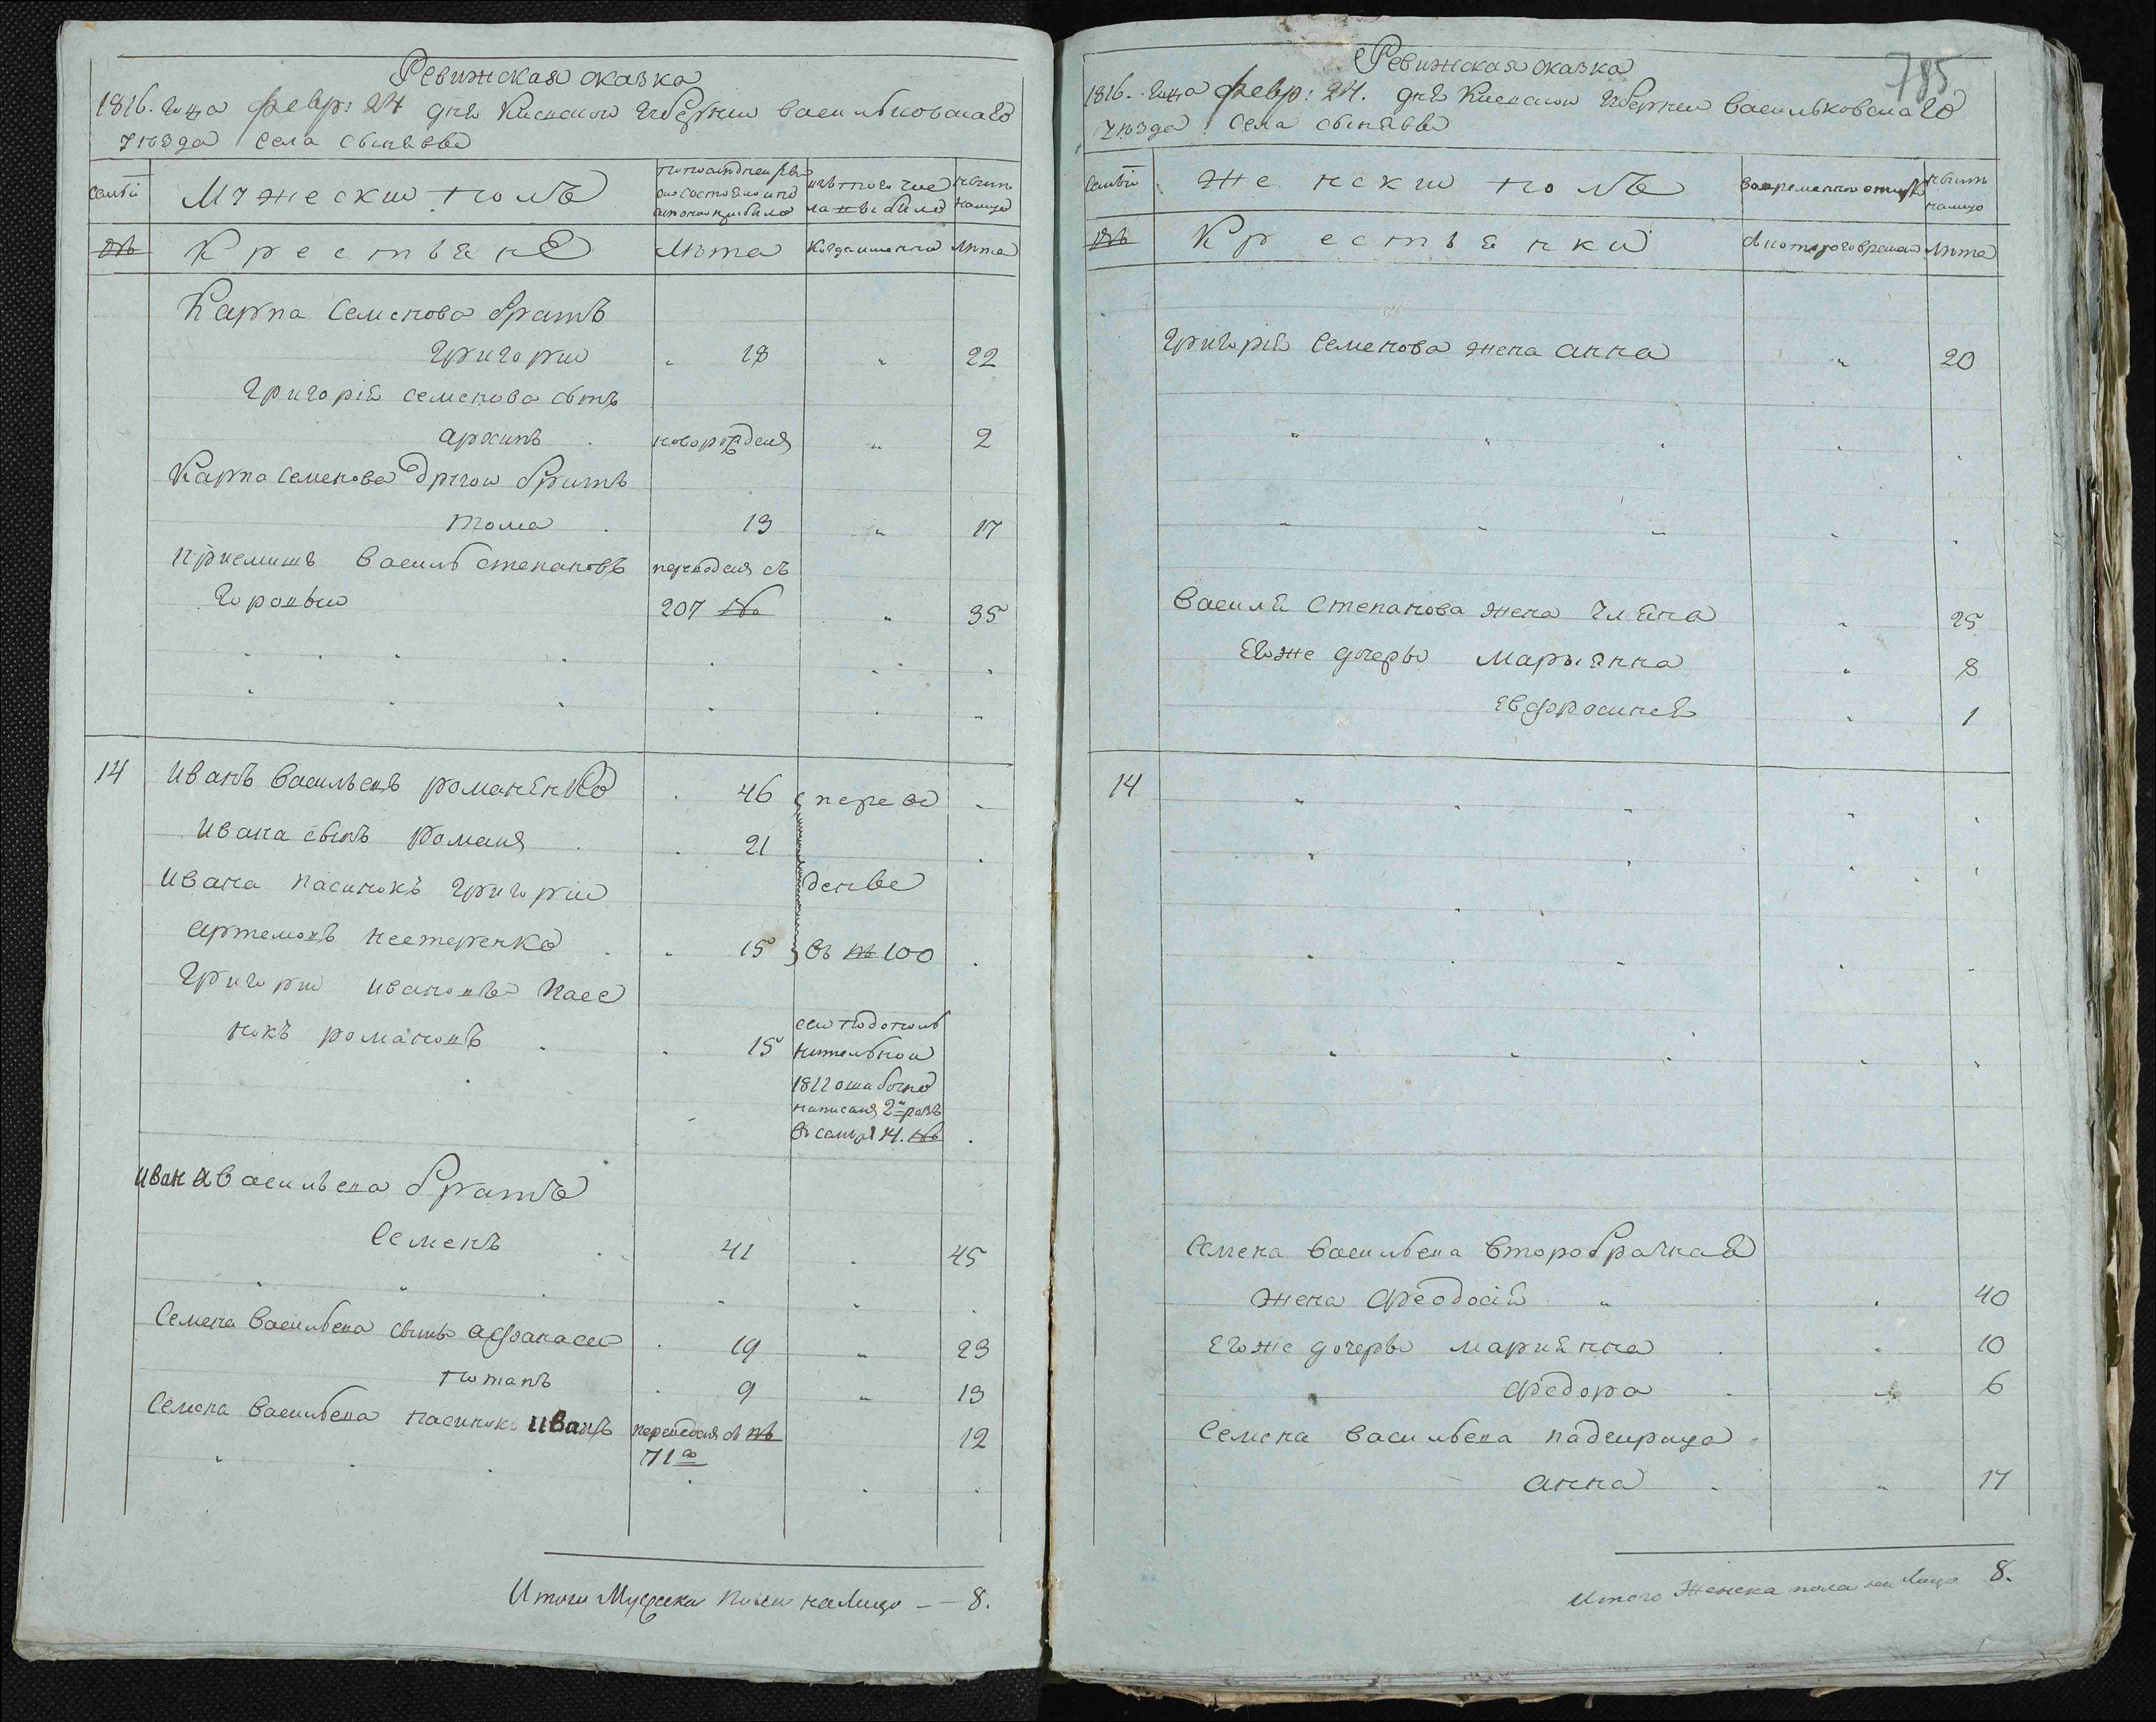 Ревижская сказка
1816. Года февр: 24 дня Киевской Губернии васильковскаго
уезда Села
семьи
Мужеский полъ
изъ того чис
ла выбыло
ныне
налицо
№
Крестьяне
Лѣта
Когда именно
Лѣта
Карпа Семенова братъ
Григорий 18 22
Григорія семенова сынъ
архипъ новорожденъ 2
Карпа Семенова другой братъ
тома 13 17
приемишъ василь степановъ переведенъ съ
Горовый 207 № 35
14 Иванъ васильевъ романенко 46 переве
Ивана сынъ Романъ 21
денве
Ивана пасинокъ григорий
артемовъ нестеренко 15 въ № 100
Григорий ивановъ пасе
нокъ романовъ 15
по дополнь
нительной
1812 ошибочно
написанъ 2й разъ
Ивана васильева братъ
Семенъ 41 45
Семена васильева сынъ афанасей 19 23
потапъ 9 13
Семена васильева пасинокъ иванъ переведенъ съ № 12
71го
Итого Мужска пола налицо — 8.
785
Ревижская сказка
1816. Года февр: 24. дня Киевской Губернии васильковскаго
уезда Села
семьи
Женский полъ
во временной отлучке
ныне
налицо
№
Крестьянки
съ котораго времени
Лѣта
Григорія Семенова жена анна 20
василя Степанова жена уляна 25
Егоже дочеры марыянна 8
Евфросинея 1
14
Семена васильева второбрачная
жена феодосия 40
Егоже дочеры мариянна 10
федора 6
Семена васильева падчирица
анна 17
Итого Женска пола на Лицо 8.